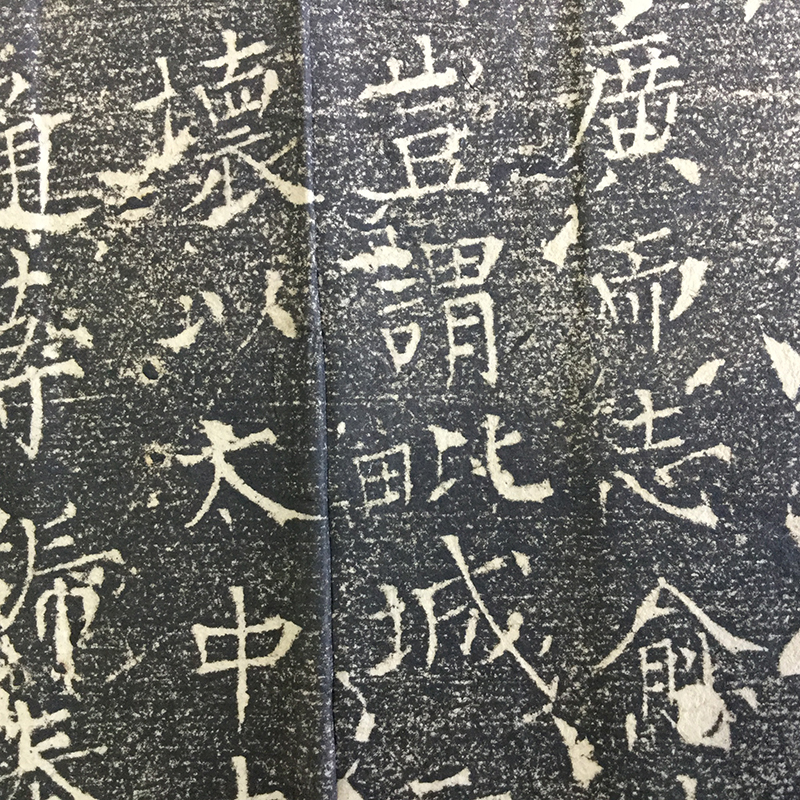 廣而志愈
豈謂毗城
壞以太中
歸